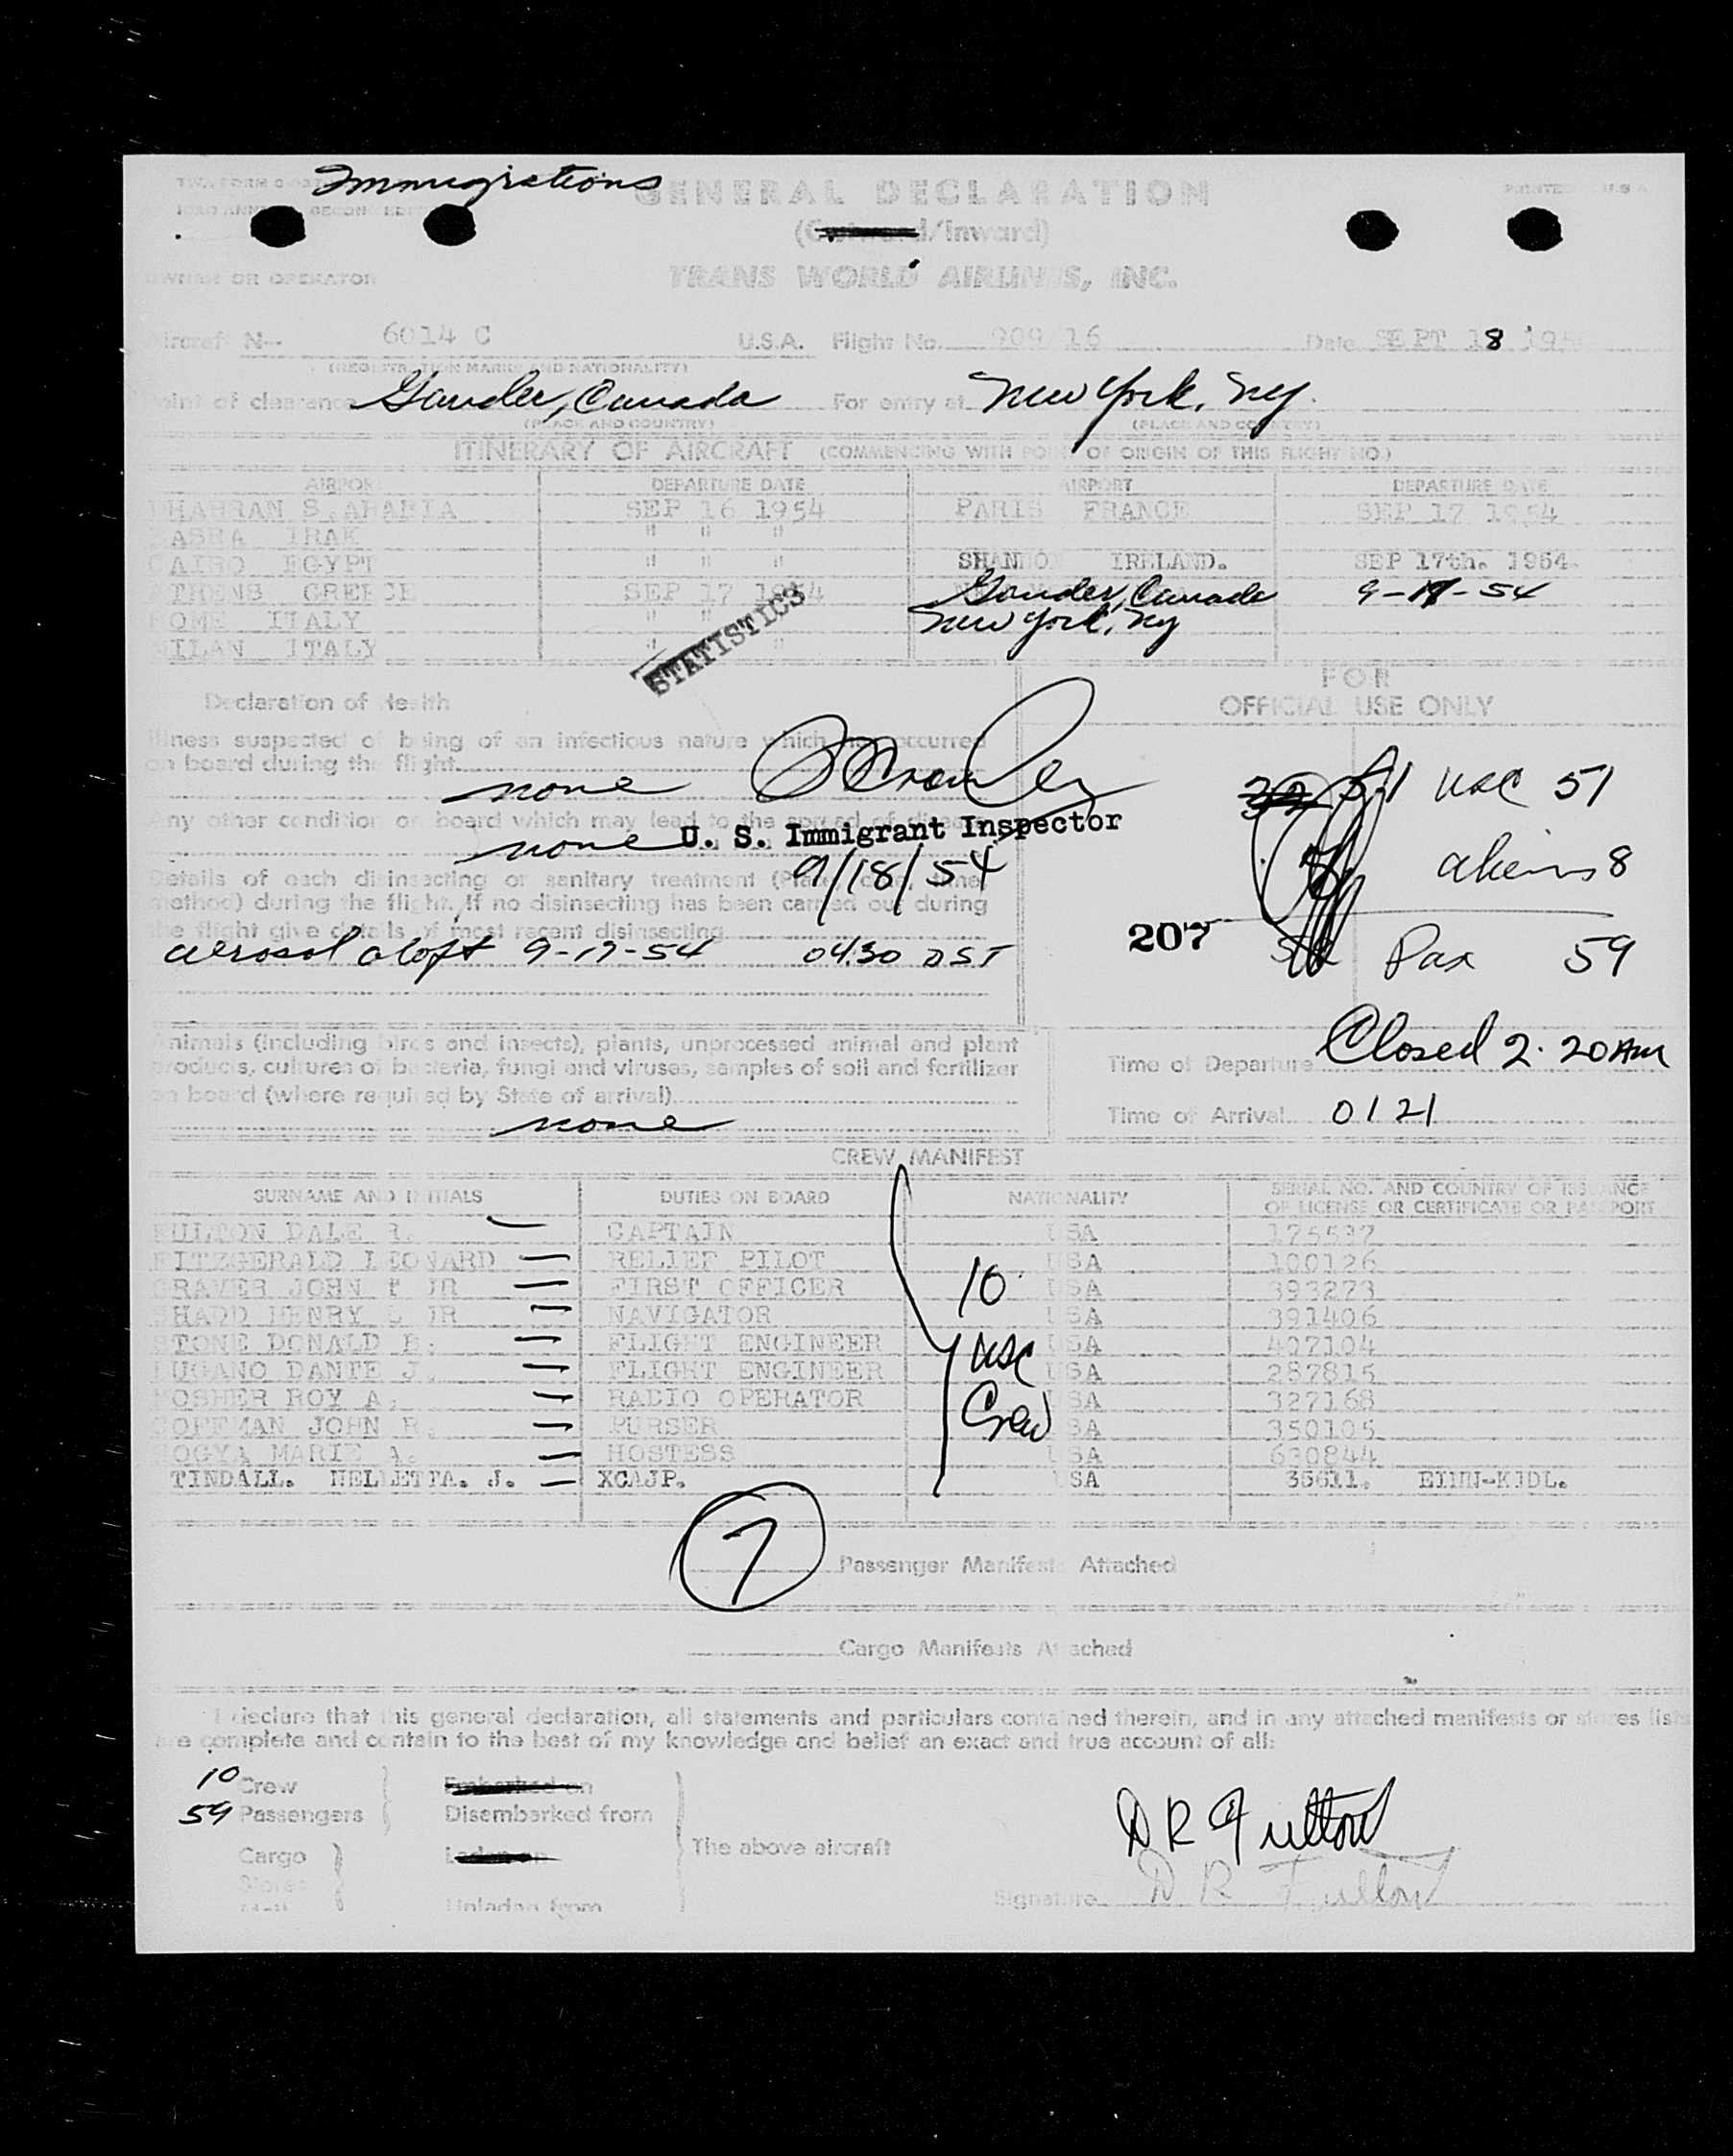 Immigrations
GENERAL DECLARATION
PRINTED U.S.A.
(Outward/Inward)
OWNER OR OPERATOR
TRANS WORLD AIRLINES, INC.
Aircraft N- 6014 C U.S.A. Flight No. 909 16 Date SEPT 18 195
(REGISTRATION MARKS AND NATIONALITY)
Point of clearance Gander, Canada For entry at New York, Ny.
(PLACE AND COUNTRY) (PLACE AND COUNTRY)
ITINERARY OF AIRCRAFT (COMMENCING WITH POINT OF ORIGIN OF THIS FLIGHT NO.)
AIRPORT DEPARTURE DATE AIRPORT DEPARTURE DATE
DHAHRAN S. ARABIA SEP 16 1954 PARIS FRANCE SEP 17 1954
BASRA IRAK " " "
CAIRO EGYPT " " " SHANNON IRELAND. SEP 17th. 1954.
ATHENS GREECE SEP 17 1954 Gander, Canada 9-17-54
ROME ITALY " " " New York, Ny
MILAN ITALY " " "
STATISTICS
FOR
OFFICIAL USE ONLY
Declaration of Health
Illness suspected of being of an infectious nature which has occurred
on board during the flight
none
51 USC 51
Any other condition on board which may lead to the spread of disease
none
U. S. Immigrant Inspector
9/18/54
aliens 8
Details of each disinsecting or sanitary treatment (Place, date, time,
method) during the flight. If no disinsecting has been carried out during
the flight give details of most recent disinsecting
aerosol aloft 9-17-54 0430 DST
207
Pax 59
Animals (including birds and insects), plants, unprocessed animal and plant
products, cultures of bacteria, fungi and viruses, samples of soil and fertilizer
on board (where required by State of arrival)
none
Time of Departure Closed 2.20 AM
Time of Arrival 0121
CREW MANIFEST
SURNAME AND INITIALS DUTIES ON BOARD NATIONALITY SERIAL NO. AND COUNTRY OF ISSUANCE
OF LICENSE OR CERTIFICATE OR PASSPORT
FULTON DALE R. CAPTAIN USA 175597
FITZGERALD LEONARD RELIEF PILOT USA 100126
GRAVER JOHN JR FIRST OFFICER USA 393273
SHADD HENRY JR NAVIGATOR USA 391406
STONE DONALD E. FLIGHT ENGINEER USA 407104
LUGANO DANTE J. FLIGHT ENGINEER USA 287815
MOSHER ROY A. RADIO OPERATOR USA 327168
JOHN R. PURSER USA 350105
MARIE A. HOSTESS USA 630844
TINDALL. HELLETTA. J. XCAJP. USA 35611. EINN-KIDL.
10
USC
Crew
7 Passenger Manifests Attached
Cargo Manifests Attached
I declare that this general declaration, all statements and particulars contained therein, and in any attached manifests or stores lists
are complete and contain to the best of my knowledge and belief an exact and true account of all:
10 Crew Embarked on
59 Passengers Disembarked from
Cargo Laden on The above aircraft
Stores
Unladen from
D R Fulton
Signature D R Fulton